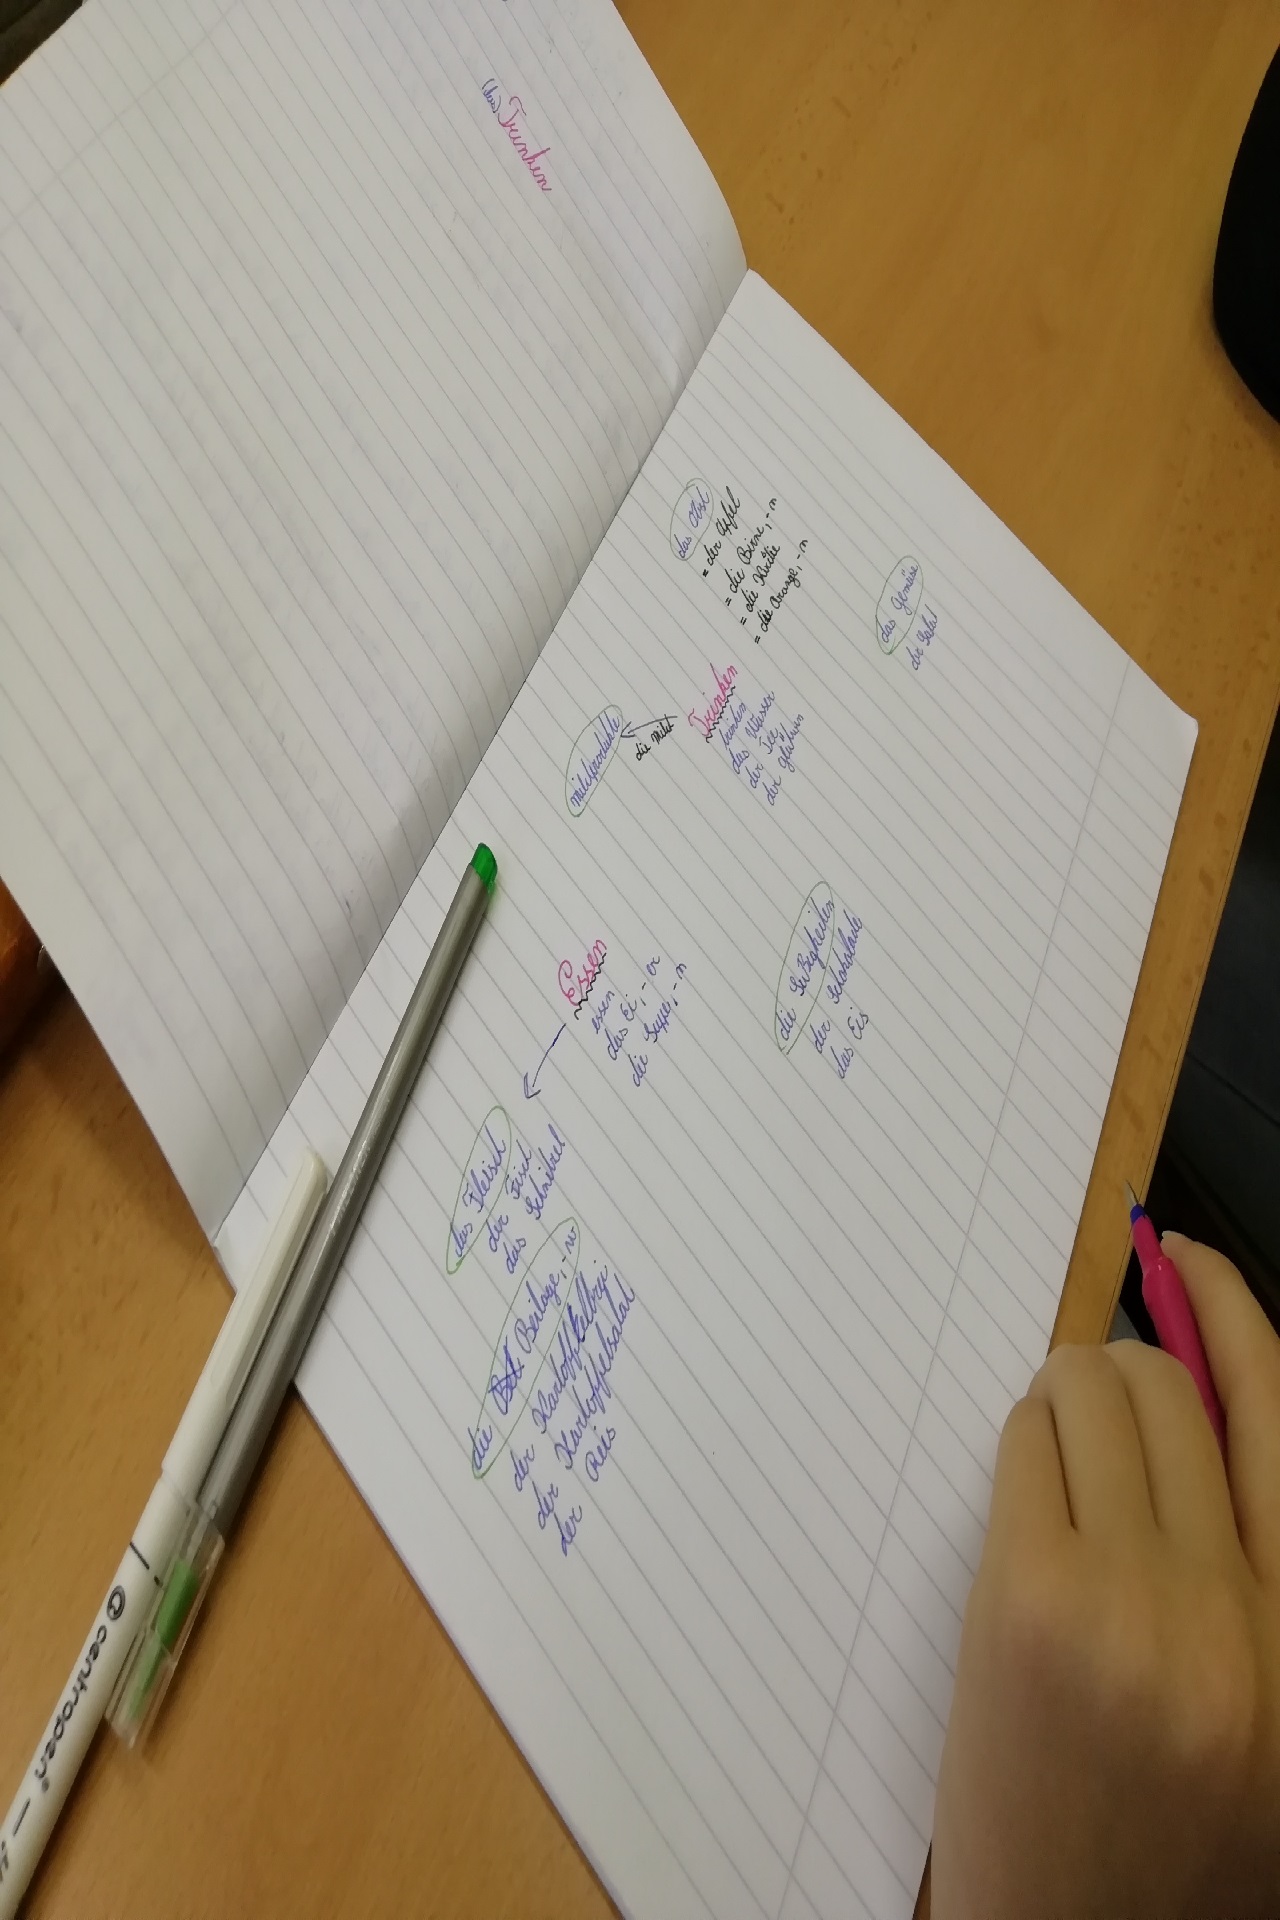 Trinken
das Obst
= der Apfel
= die Birne, -n
= die
= die Orange, -n
das Gemüse
der Salat
Milchprodukte
die Milch
Trinken
trinken
das Wasser
der Tee
der
Essen
essen
das Ei, -er
die Suppe, -n
die Süßigkeiten
der Schokolade
das Eis
das Fleisch
der Fisch
das Schnitzel
die Beilage, -n
der Kartoffelbrei
der Kartoffelsalat
der Reis
centropen